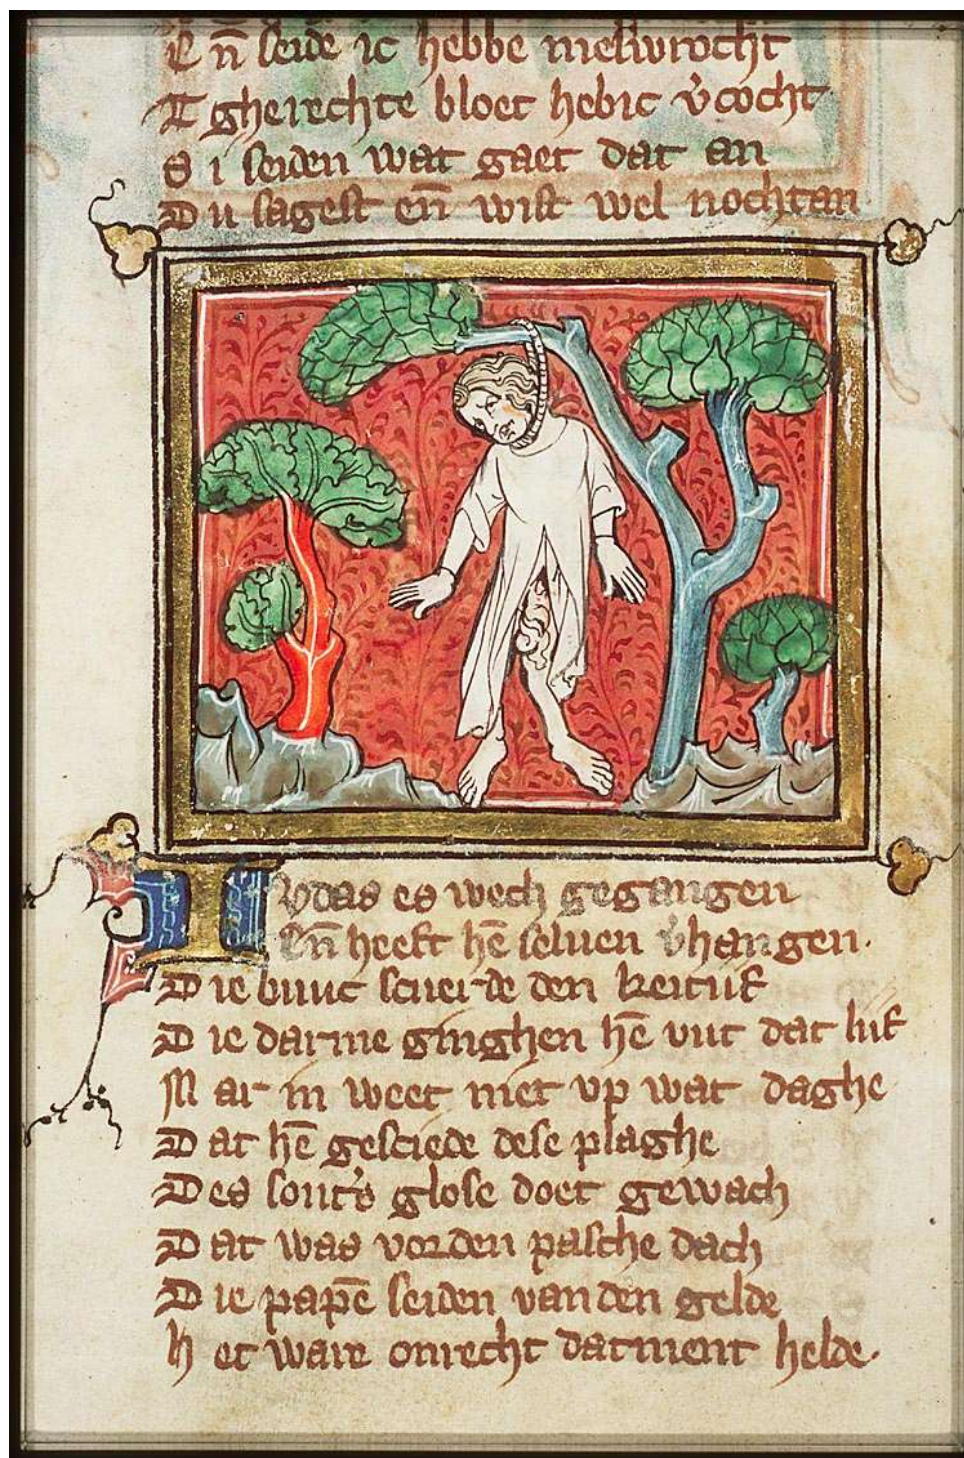 Eñ seide ic hebbe meswrocht
Tgherechte bloet hebic v̾cocht
Si seiden wat gaet dat an
Du sagest eñ wist wel nochtan
Iudas es wech gegangen
Eñ heeft hē seluen v̾hangen.
Die buuc scuerde den keitiif
Die darme ginghen hē vut dat liif
Mar in weet niet vp wat daghe
Dat hē gesciede dese plaghe
Des sont's glose doet gewach
Dat was vor den pasche dach
Die papē seiden van den gelde
Het ware onrecht datment helde.